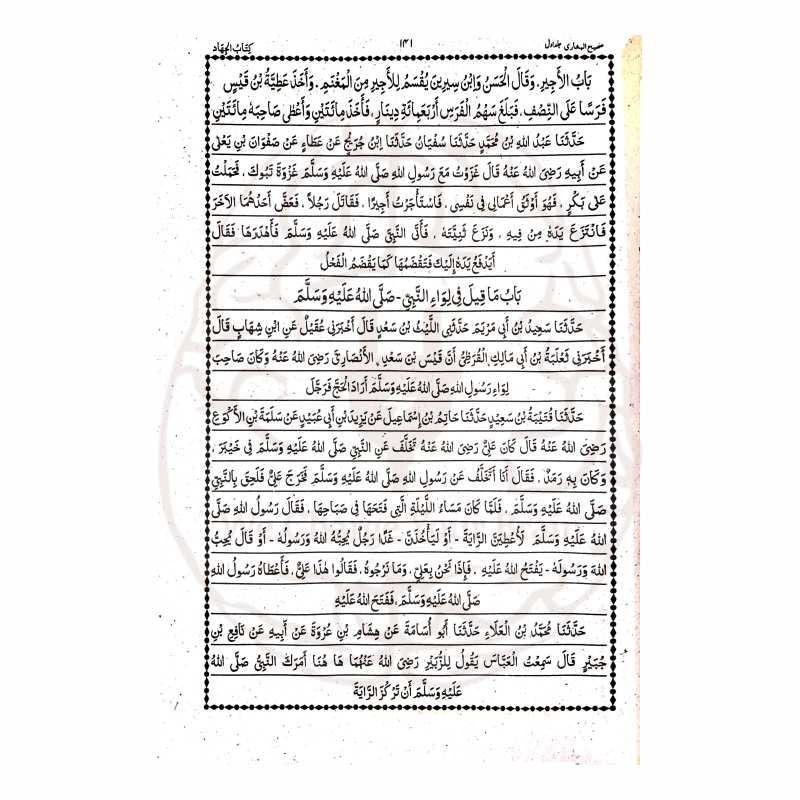 صحیح البخاری جلد اول ۱۴۱ كِتَابُ الجِهَاد
بَابُ الأَجِيرِ. وَقَالَ الْحَسَنُ وَابْنُ سِيرِينَ يُقْسَمُ لِلأَجِيرِ مِنَ الْمَغْنَمِ. وَأَخَذَ عَطِيَّةُ بْنُ قَيْسٍ
فَرَسًا عَلَى النِّصْفِ، فَبَلَغَ سَهْمُ الْفَرَسِ أَرْبَعَمِائَةِ دِينَارٍ، فَأَخَذَ مِائَتَيْنِ وَأَعْطَى صَاحِبَهُ مِائَتَيْنِ
حَدَّثَنَا عَبْدُ اللهِ بْنُ مُحَمَّدٍ حَدَّثَنَا سُفْيَانُ حَدَّثَنَا ابْنُ جُرَيْجٍ عَنْ عَطَاءٍ عَنْ صَفْوَانَ بْنِ يَعْلَى
عَنْ أَبِيهِ رَضِيَ اللهُ عَنْهُ قَالَ غَزَوْتُ مَعَ رَسُولِ اللهِ صَلَّى اللهُ عَلَيْهِ وَسَلَّمَ غَزْوَةَ تَبُوكَ، فَحَمَلْتُ
عَلَى بَكْرٍ، فَهُوَ أَوْثَقُ أَعْمَالِي فِي نَفْسِي، فَاسْتَأْجَرْتُ أَجِيرًا، فَقَاتَلَ رَجُلاً، فَعَضَّ أَحَدُهُمَا الآخَرَ
فَانْتَزَعَ يَدَهُ مِنْ فِيهِ، وَنَزَعَ ثَنِيَّتَهُ، فَأَتَى النَّبِيَّ صَلَّى اللهُ عَلَيْهِ وَسَلَّمَ فَأَهْدَرَهَا فَقَالَ
أَيَدْفَعُ يَدَهُ إِلَيْكَ فَتَقْضَمُهَا كَمَا يَقْضَمُ الْفَحْلُ
بَابُ مَا قِيلَ فِي لِوَاءِ النَّبِيِّ - صَلَّى اللهُ عَلَيْهِ وَسَلَّمَ
حَدَّثَنَا سَعِيدُ بْنُ أَبِي مَرْيَمَ حَدَّثَنِي اللَّيْثُ بْنُ سَعْدٍ قَالَ أَخْبَرَنِي عُقَيْلٌ عَنِ ابْنِ شِهَابٍ قَالَ
أَخْبَرَنِي ثَعْلَبَةُ بْنُ أَبِي مَالِكٍ الْقُرَظِيُّ أَنَّ قَيْسَ بْنَ سَعْدٍ الأَنْصَارِيَّ رَضِيَ اللهُ عَنْهُ وَكَانَ صَاحِبَ
لِوَاءِ رَسُولِ اللهِ صَلَّى اللهُ عَلَيْهِ وَسَلَّمَ أَرَادَ الْحَجَّ فَرَجَّلَ
حَدَّثَنَا قُتَيْبَةُ بْنُ سَعِيدٍ حَدَّثَنَا حَاتِمُ بْنُ إِسْمَاعِيلَ عَنْ يَزِيدَ بْنِ أَبِي عُبَيْدٍ عَنْ سَلَمَةَ بْنِ الأَكْوَعِ
رَضِيَ اللهُ عَنْهُ قَالَ كَانَ عَلِيٌّ رَضِيَ اللهُ عَنْهُ تَخَلَّفَ عَنِ النَّبِيِّ صَلَّى اللهُ عَلَيْهِ وَسَلَّمَ فِي خَيْبَرَ،
وَكَانَ بِهِ رَمَدٌ، فَقَالَ أَنَا أَتَخَلَّفُ عَنْ رَسُولِ اللهِ صَلَّى اللهُ عَلَيْهِ وَسَلَّمَ فَخَرَجَ عَلِيٌّ فَلَحِقَ بِالنَّبِيِّ
صَلَّى اللهُ عَلَيْهِ وَسَلَّمَ، فَلَمَّا كَانَ مَسَاءُ اللَّيْلَةِ الَّتِي فَتَحَهَا فِي صَبَاحِهَا، فَقَالَ رَسُولُ اللهِ صَلَّى
اللهُ عَلَيْهِ وَسَلَّمَ لَأُعْطِيَنَّ الرَّايَةَ - أَوْ لَيَأْخُذَنَّ - غَدًا رَجُلٌ يُحِبُّهُ اللهُ وَرَسُولُهُ - أَوْ قَالَ يُحِبُّ
اللهَ وَرَسُولَهُ - يَفْتَحُ اللهُ عَلَيْهِ، فَإِذَا نَحْنُ بِعَلِيٍّ، وَمَا نَرْجُوهُ، فَقَالُوا هٰذَا عَلِيٌّ، فَأَعْطَاهُ رَسُولُ اللهِ
صَلَّى اللهُ عَلَيْهِ وَسَلَّمَ، فَفَتَحَ اللهُ عَلَيْهِ
حَدَّثَنَا مُحَمَّدُ بْنُ الْعَلَاءِ حَدَّثَنَا أَبُو أُسَامَةَ عَنْ هِشَامِ بْنِ عُرْوَةَ عَنْ أَبِيهِ عَنْ نَافِعِ بْنِ
جُبَيْرٍ قَالَ سَمِعْتُ الْعَبَّاسَ يَقُولُ لِلزُّبَيْرِ رَضِيَ اللهُ عَنْهُمَا هَا هُنَا أَمَرَكَ النَّبِيُّ صَلَّى اللهُ
عَلَيْهِ وَسَلَّمَ أَنْ تَرْكُزَ الرَّايَةَ